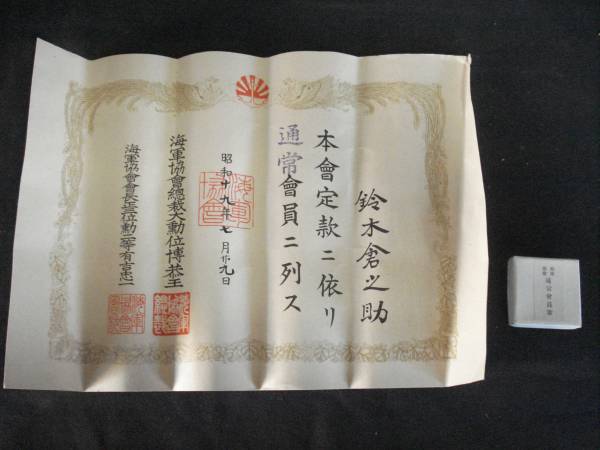 鈴木倉之助
本會定款ニ依リ
通常會員ニ列ス
昭和十九年七月廿九日
海軍協會總裁大勲位博恭王
海軍協會會長正三位勲一等有吉忠一
海軍協會
通常會員章